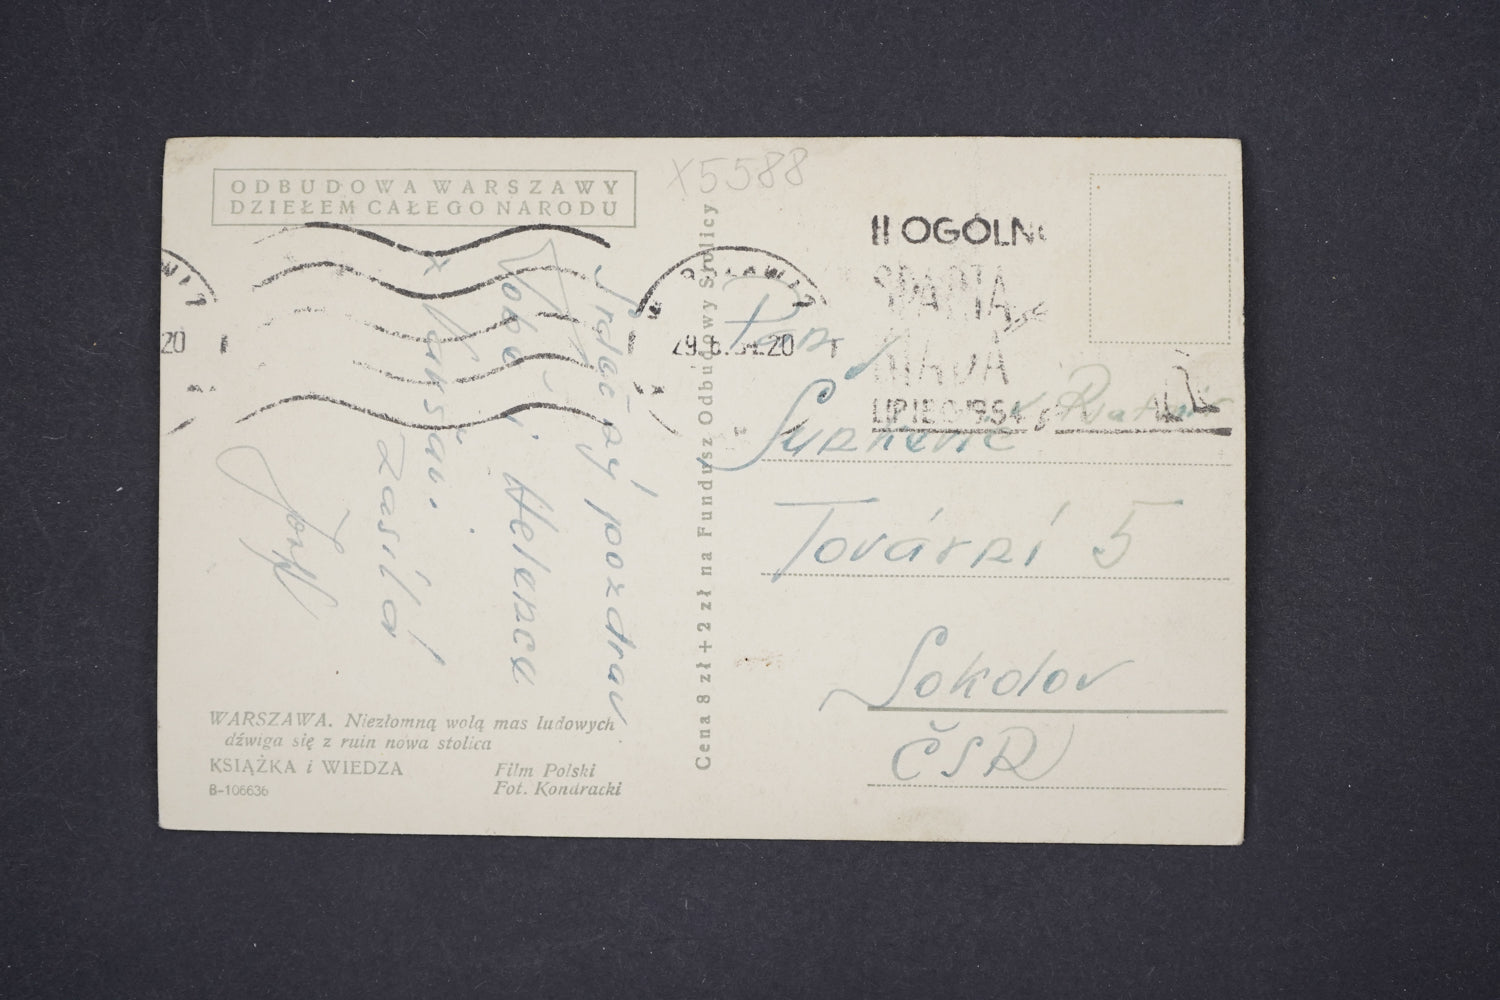 ODBUDOWA WARSZAWY
DZIEŁEM CAŁEGO NARODU
X5588
Srdečný pozdrav
Tobě i Helence
z Varšavi.
zasílá
Josef
20
II OGÓLN
SPARTA
KIADA
LIPIEC 1954
29.6.54.20
Pan
Tovární 5
Sokolov
ČSR
Cena 8 zł + 2 zł na Fundusz Odbudowy Stolicy
WARSZAWA. Niezłomną wolą mas ludowych
dźwiga się z ruin nowa stolica
KSIĄŻKA i WIEDZA
Film Polski
B-106636
Fot. Kondracki